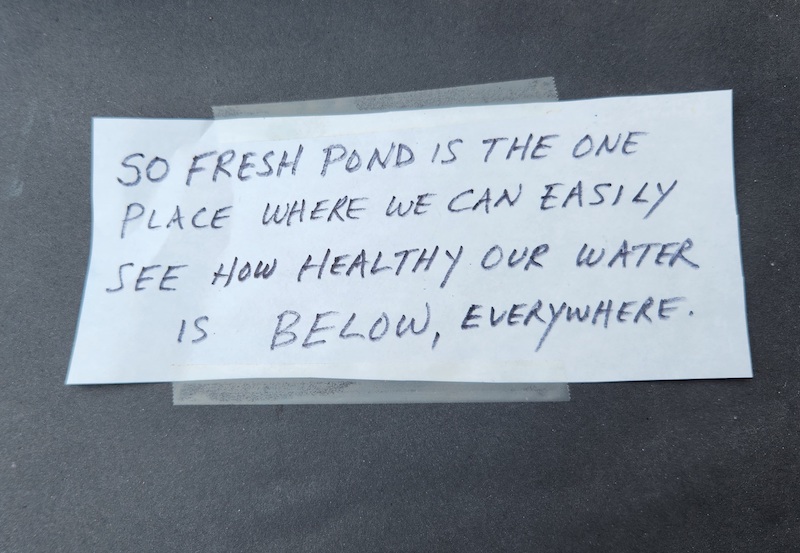 SO FRESH POND IS THE ONE
PLACE WHERE WE CAN EASILY
SEE HOW HEALTHY OUR WATER
IS BELOW, EVERYWHERE.